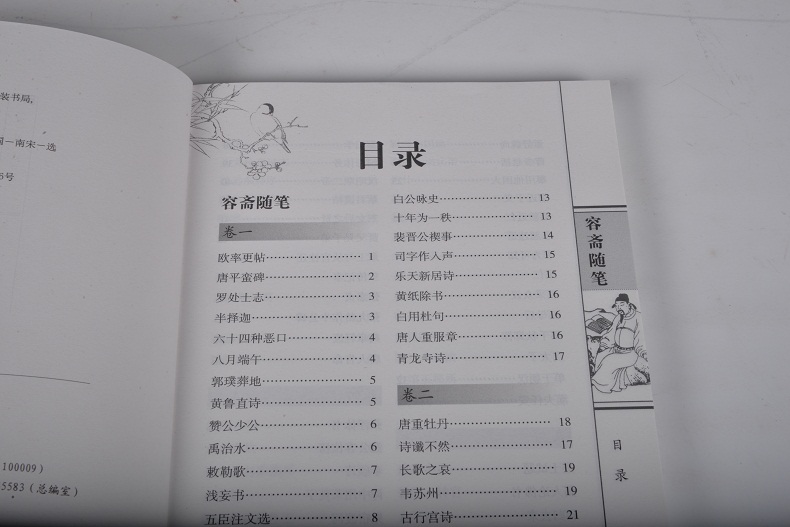 装书局,
国－南宋－选
5号
100009）
5583（总编室）
目录
容斋随笔
卷一
欧率更帖 1
唐平蛮碑 2
罗处士志 3
半择迦 3
六十四种恶口 4
八月端午 4
郭璞葬地 5
黄鲁直诗 5
赞公少公 6
禹治水 6
敕勒歌 7
浅妄书 7
五臣注文选 8
白公咏史 13
十年为一秩 13
裴晋公禊事 14
司字作入声 15
乐天新居诗 15
黄纸除书 16
白用杜句 16
唐人重服章 16
青龙寺诗 17
卷二
唐重牡丹 18
诗谶不然 17
长歌之哀 19
韦苏州 19
古行宫诗 21
容斋随笔
目录